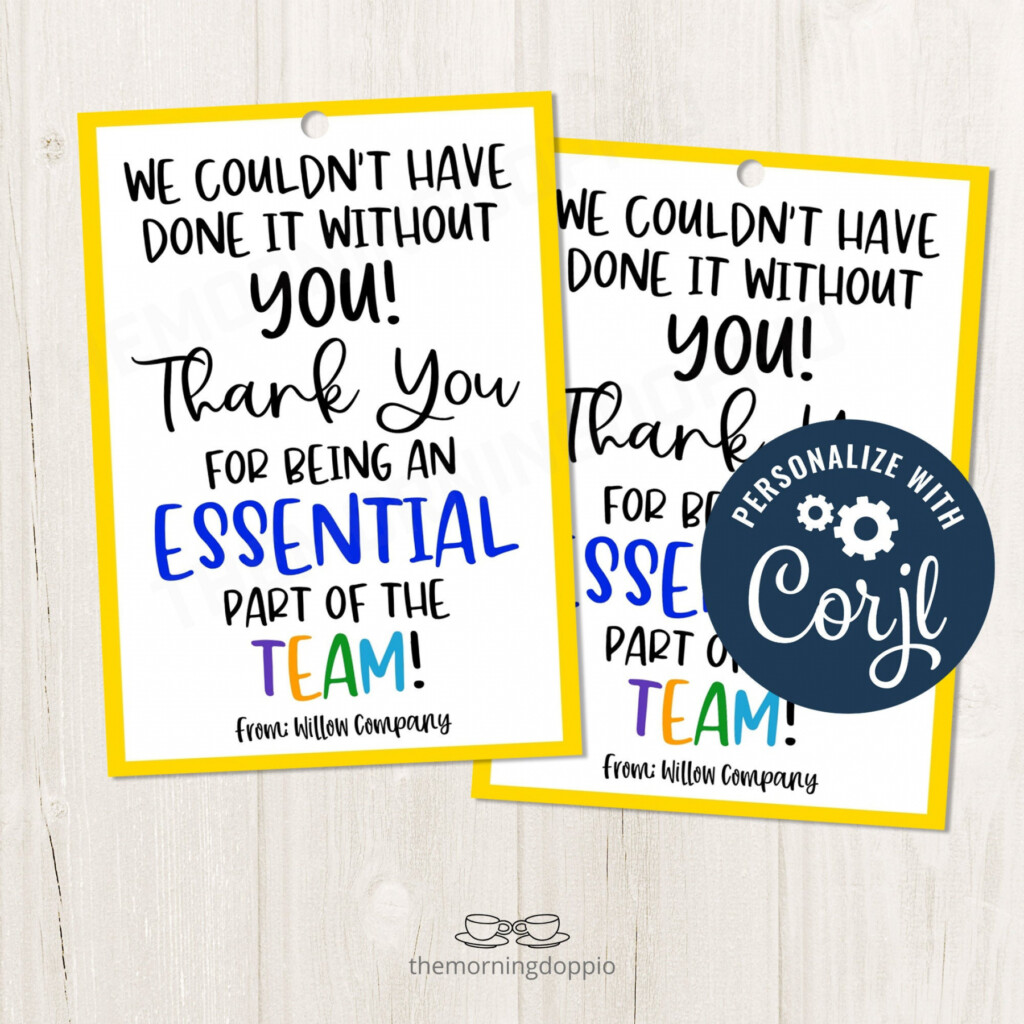 WE COULDN'T HAVE
DONE IT WITHOUT
YOU!
Thank You
FOR BEING AN
ESSENTIAL
PART OF THE
TEAM!
From: Willow Company
WE COULDN'T HAVE
DONE IT WITHOUT
YOU!
Thank
FOR
PART
TEAM!
From: Willow Company
PERSONALIZE WITH
Corjl
themorningdoppio